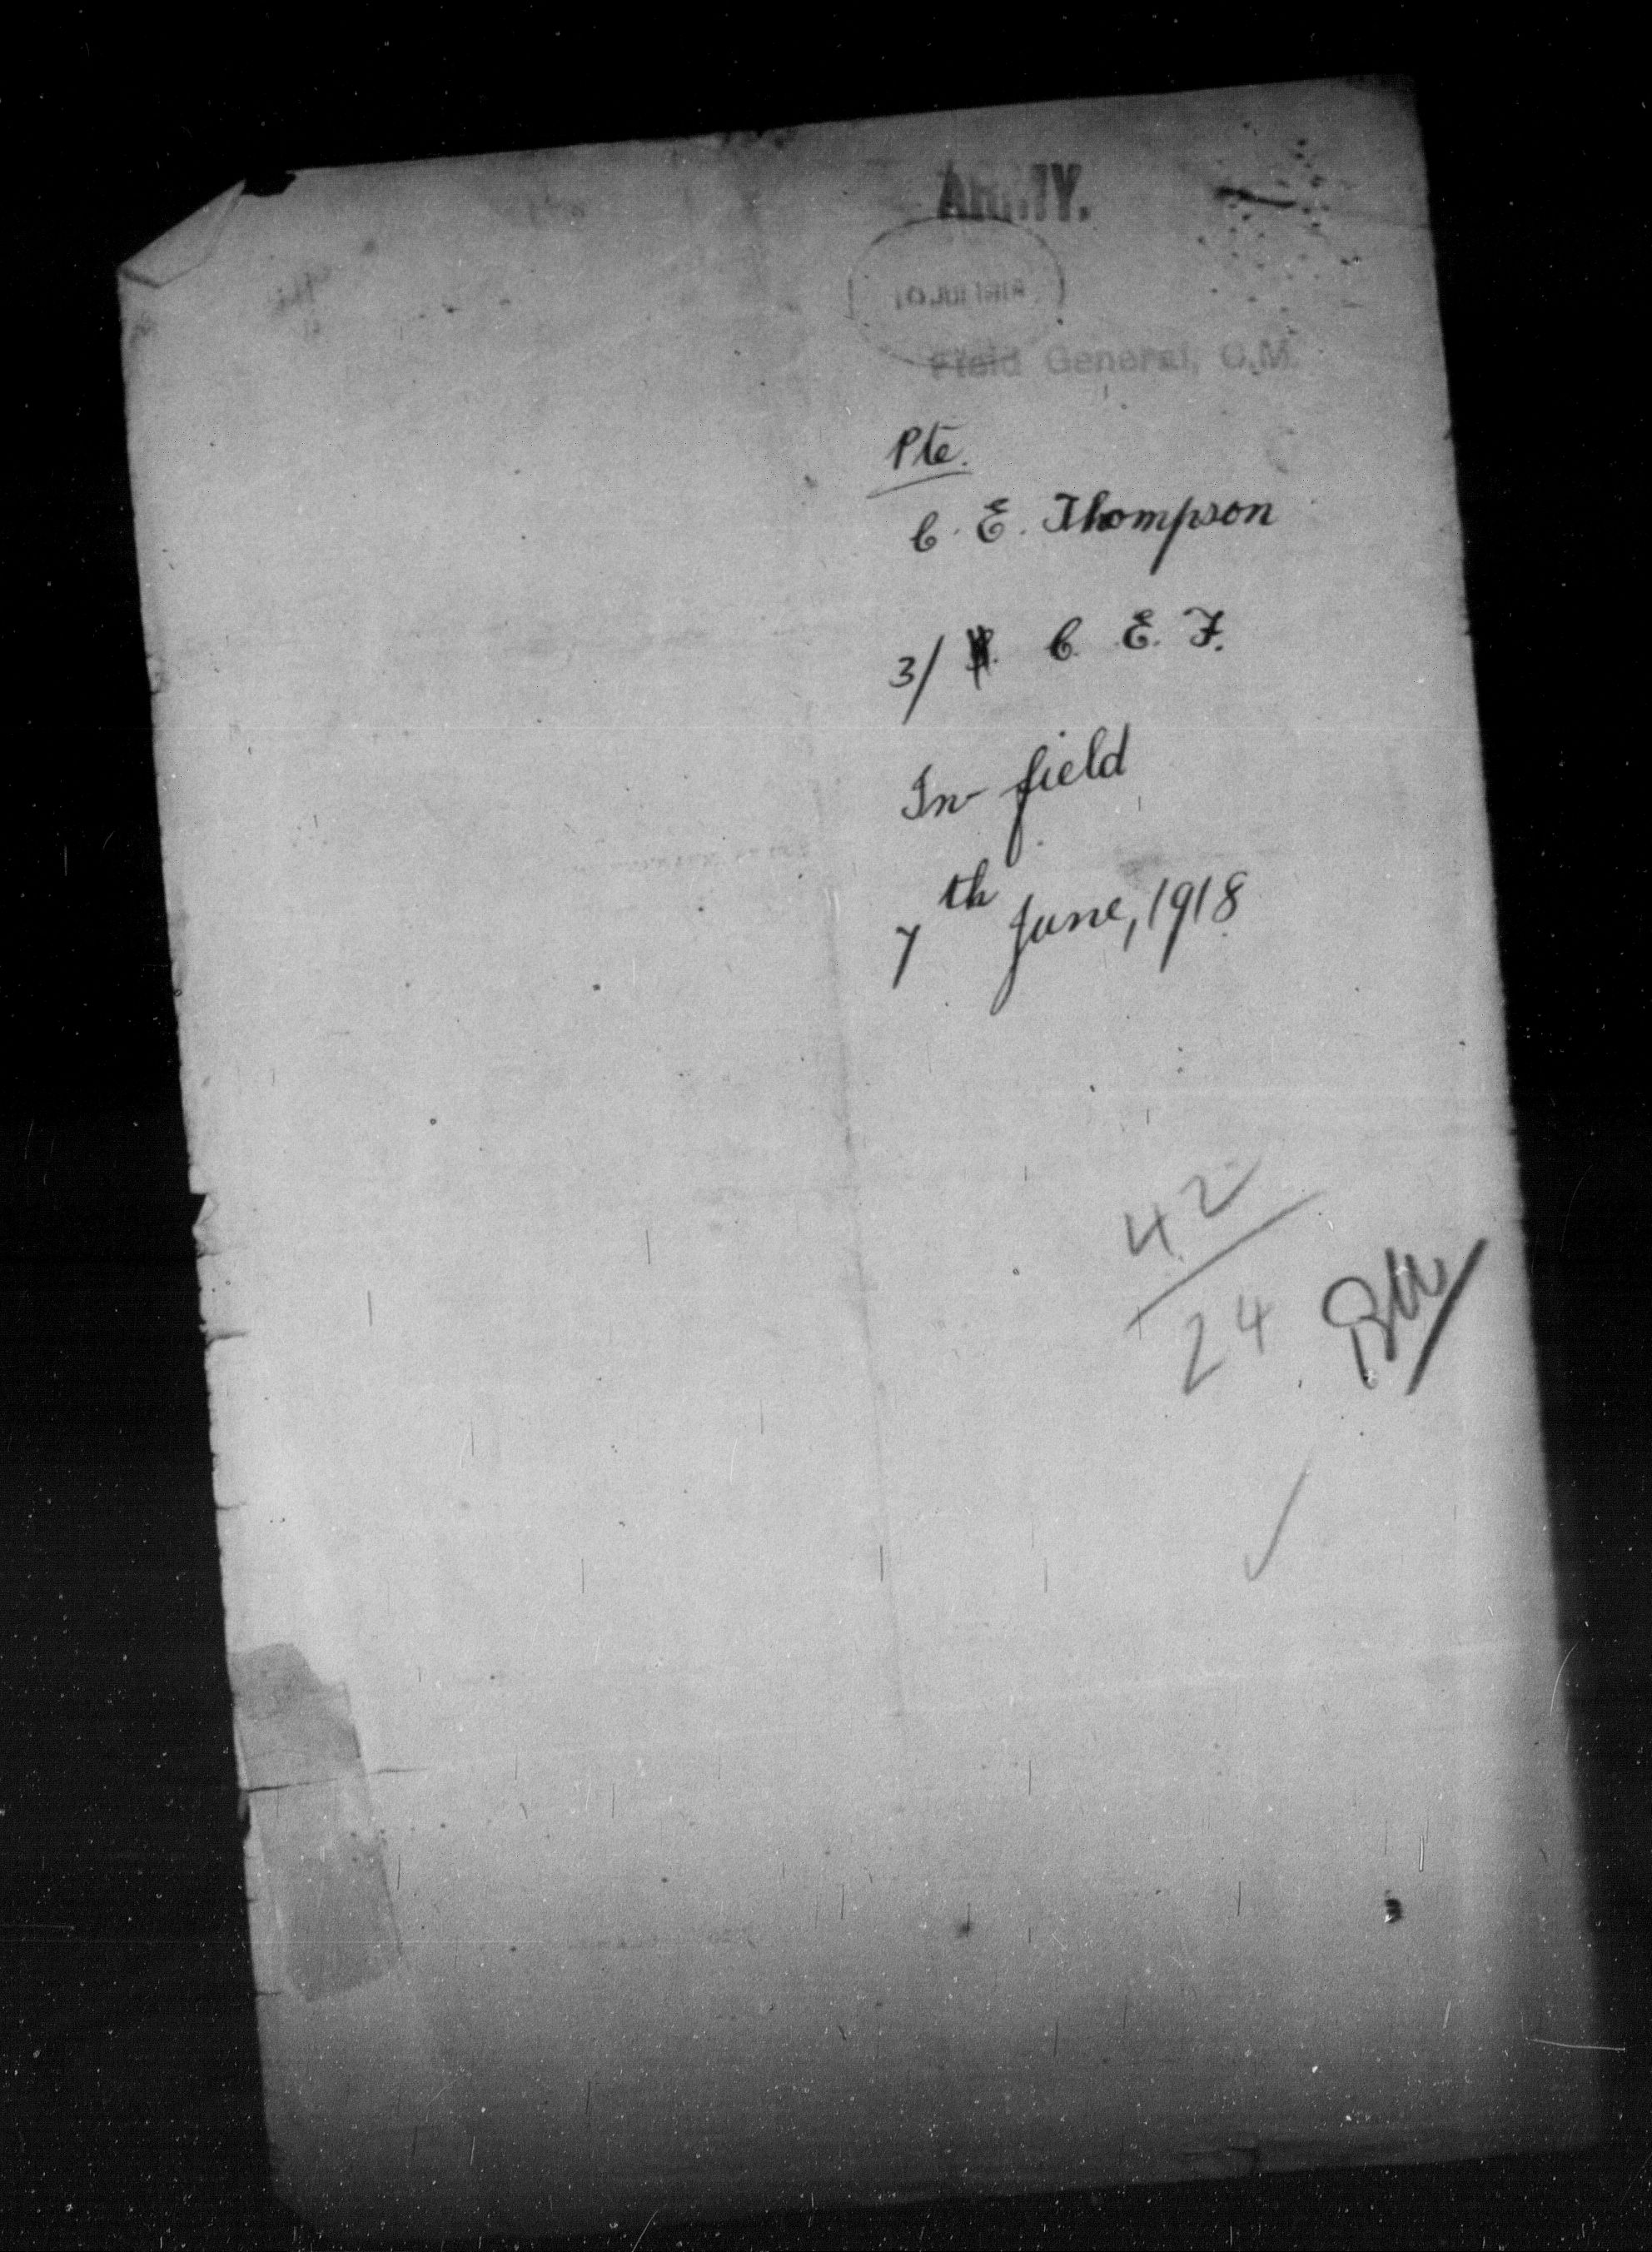 ARMY.
10 JUL 1918
Field General, C.M.
Pte.
C. E. Thompson
3/ C. E. F.
In field
7th June, 1918
42
24